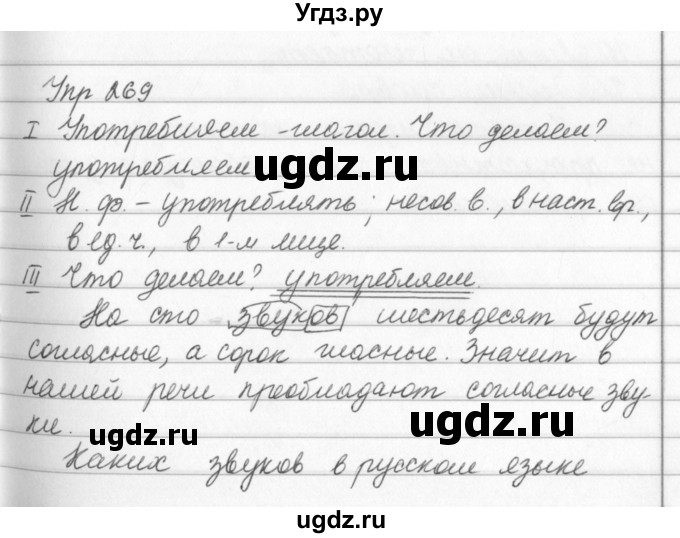 Угдз.ру
Упр 269
I Употребляем - глагол. Что делаем?
употребляем
ugdz.ru
II Н. ф. - употреблять; несов. в., в наст. вр.,
в ед. ч., в 1-м лице.
III Что делаем? употребляем.
На сто звуков шестьдесят будут
согласные, а сорок гласные. Значит в
нашей речи преобладают согласные зву-
ки.
ugdz.ru
ugdz.ru
Каких звуков в русском языке
ugdz.ru